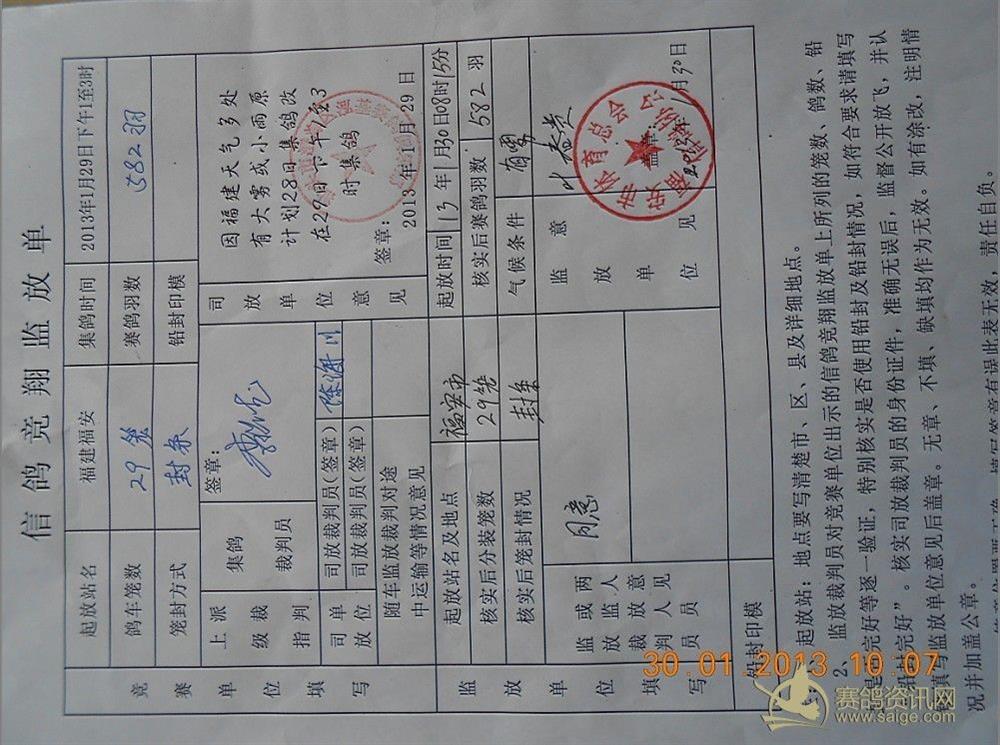 信鸽竞翔监放单
竞赛单位填写
起放站名 福建福安 集鸽时间 2013年1月29日下午1至3时
鸽车笼数 29笼 赛鸽羽数 582羽
笼封方式 封条 铅封印模
上级指派裁判
集鸽裁判员
签章：
司放单位意见
因福建天气多处
有大雾或小雨原
计划28日集鸽改
在29日下午1至3
时集鸽
签章：
2013年1月29日
司放单位
司放裁判员(签章)
司放裁判员(签章)
随车监放裁判对途
中运输等情况意见
监放单位填写
起放站名及地点 福安市 起放时间 13年1月30日08时15分
核实后分装笼数 29笼 核实后赛鸽羽数 1582羽
核实后笼封情况 封条 气候条件
监放裁判员或两监放人意见员 同意
监放单位意见
体育总会
月30日
铅封印模
1、起放站：地点要写清楚市、区、县及详细地点。
2、监放裁判员对竞赛单位出示的信鸽竞翔监放单上所列的笼数、鸽数、铅
是否完好等逐一验证，特别核实是否使用铅封及铅封情况，如符合要求请填写
铅封完好”。核实司放裁判员的身份证件，准确无误后，监督公开放飞，并认
真填写监放单位意见后盖章。无章、不填、缺填均作为无效。如有涂改，注明情
况并加盖公章。
填写签章有误此表无效，责任自负。
30.01.2013 10:07
赛鸽资讯网
www.saige.com